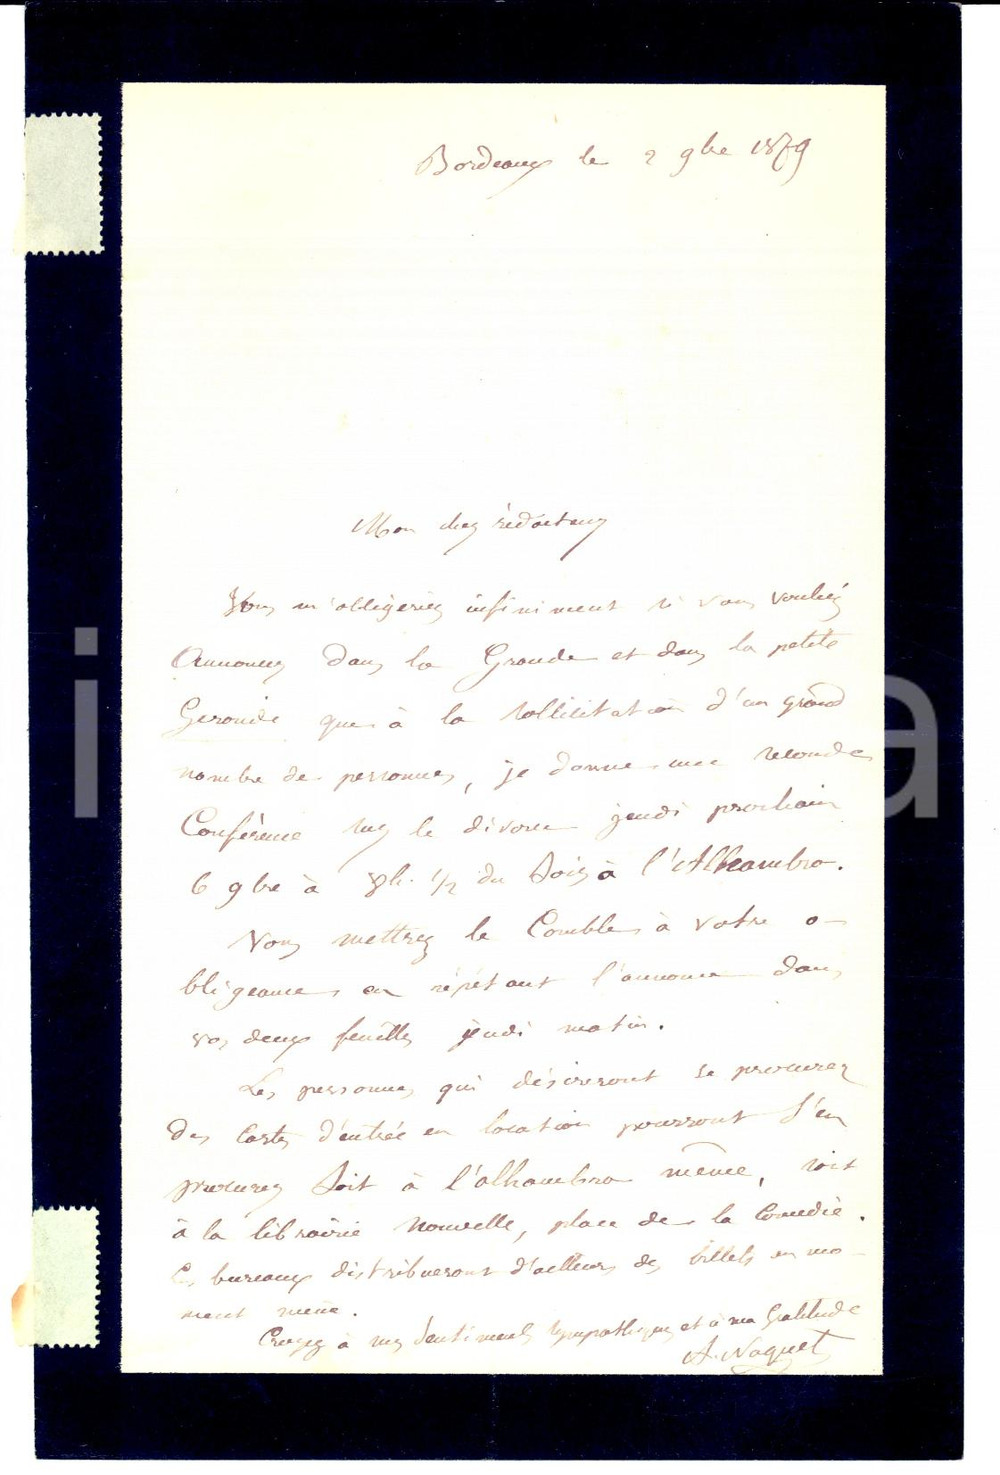 Bordeaux le 2 9bre 1879
Mon cher rédacteur
Vous m'obligeriez infiniment si vous vouliez
Annoncer dans la Gironde et dans la petite
Gironde que à la sollicitation d'un grand
nombre de personnes, je donne une seconde
Conférence sur le divorce jeudi prochain
6 9bre à 8h. 1/2 du Soir à l'Alhambra.
Vous mettrez le Comble à votre o-
bligeance en répétant l'annonce dans
vos deux feuilles jeudi matin.
Les personnes qui désireront se procurer
des cartes d'entrée en location pourront s'en
procurer Soit à l'alhambra même, soit
à la librairie nouvelle, place de la Comédie.
Les bureaux distribueront d'ailleurs des billets en mo-
ment même.
Croyez à mes Sentiments sympathiques et à ma Gratitude
A. Naquet